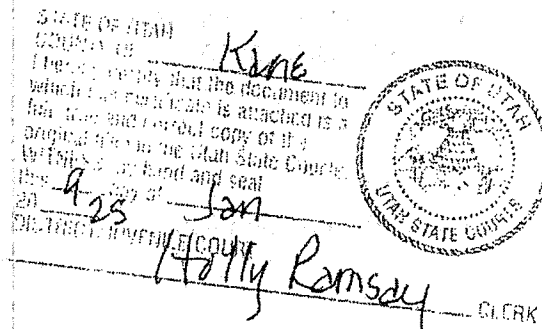 STATE OF UTAH
COUNTY OF Kane
I hereby certify that the document to
which this certificate is attached is a
full, true and correct copy of the
original filed in the Utah State Courts.
WITNESS my hand and seal
this 9 day of Jan
20 25
DISTRICT/JUVENILE COURT
Holly Ramsay CLERK
STATE OF UTAH
UTAH STATE COURTS